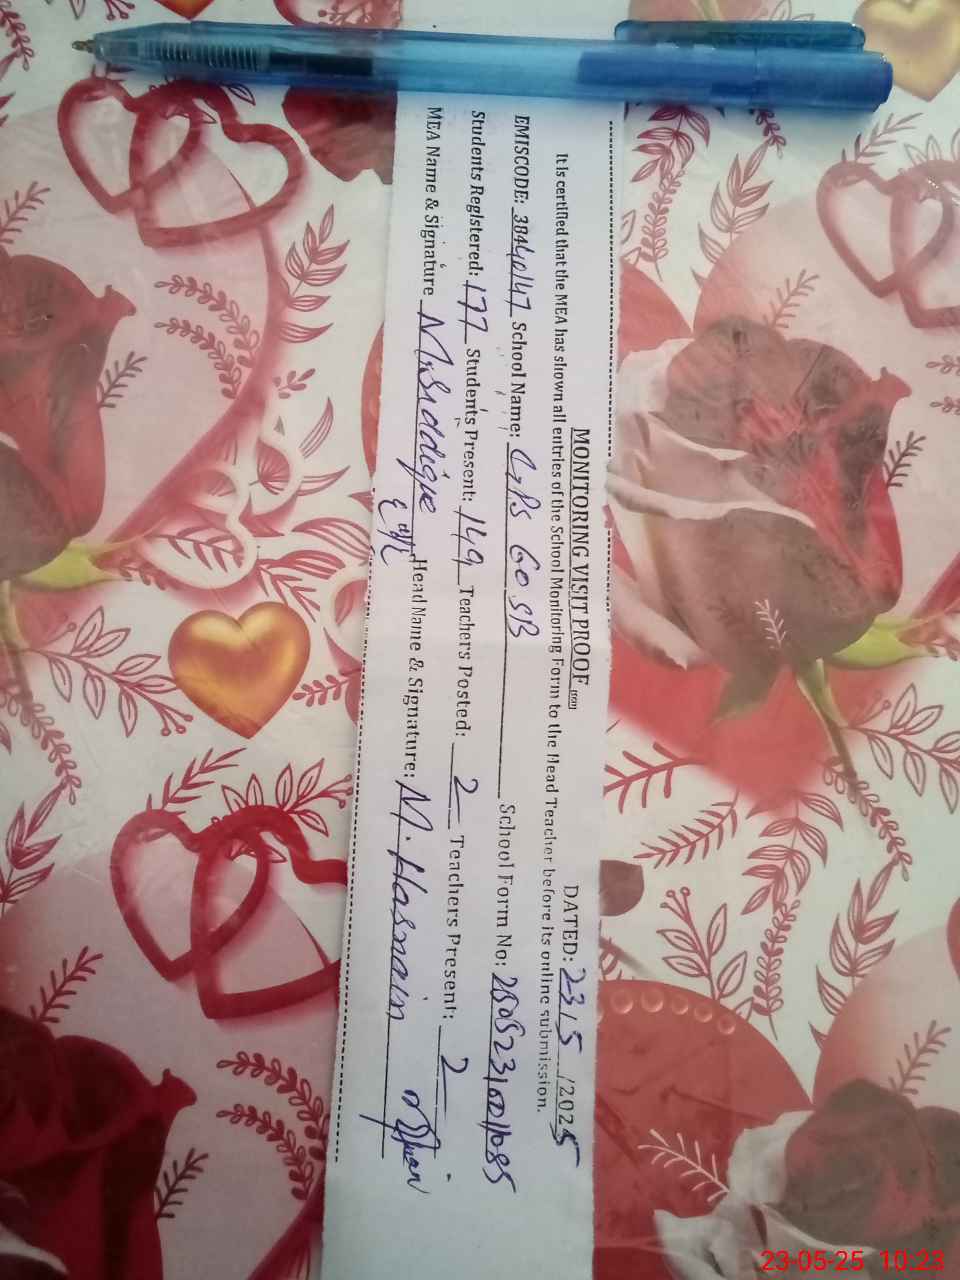 MONITORING VISIT PROOF
DATED: 23/5/2025
It is certified that the MEA has shown all entries of the School Monitoring Form to the Head Teacher before its online submission.
EMISCODE: 38440147 School Name: GPS 60 SB School Form No: 2505231001085
Students Registered: 177 Students Present: 149 Teachers Posted: 2 Teachers Present: 2
MEA Name & Signature M. Siddique Head Name & Signature: M. Hasnain
23-05-25 10:23